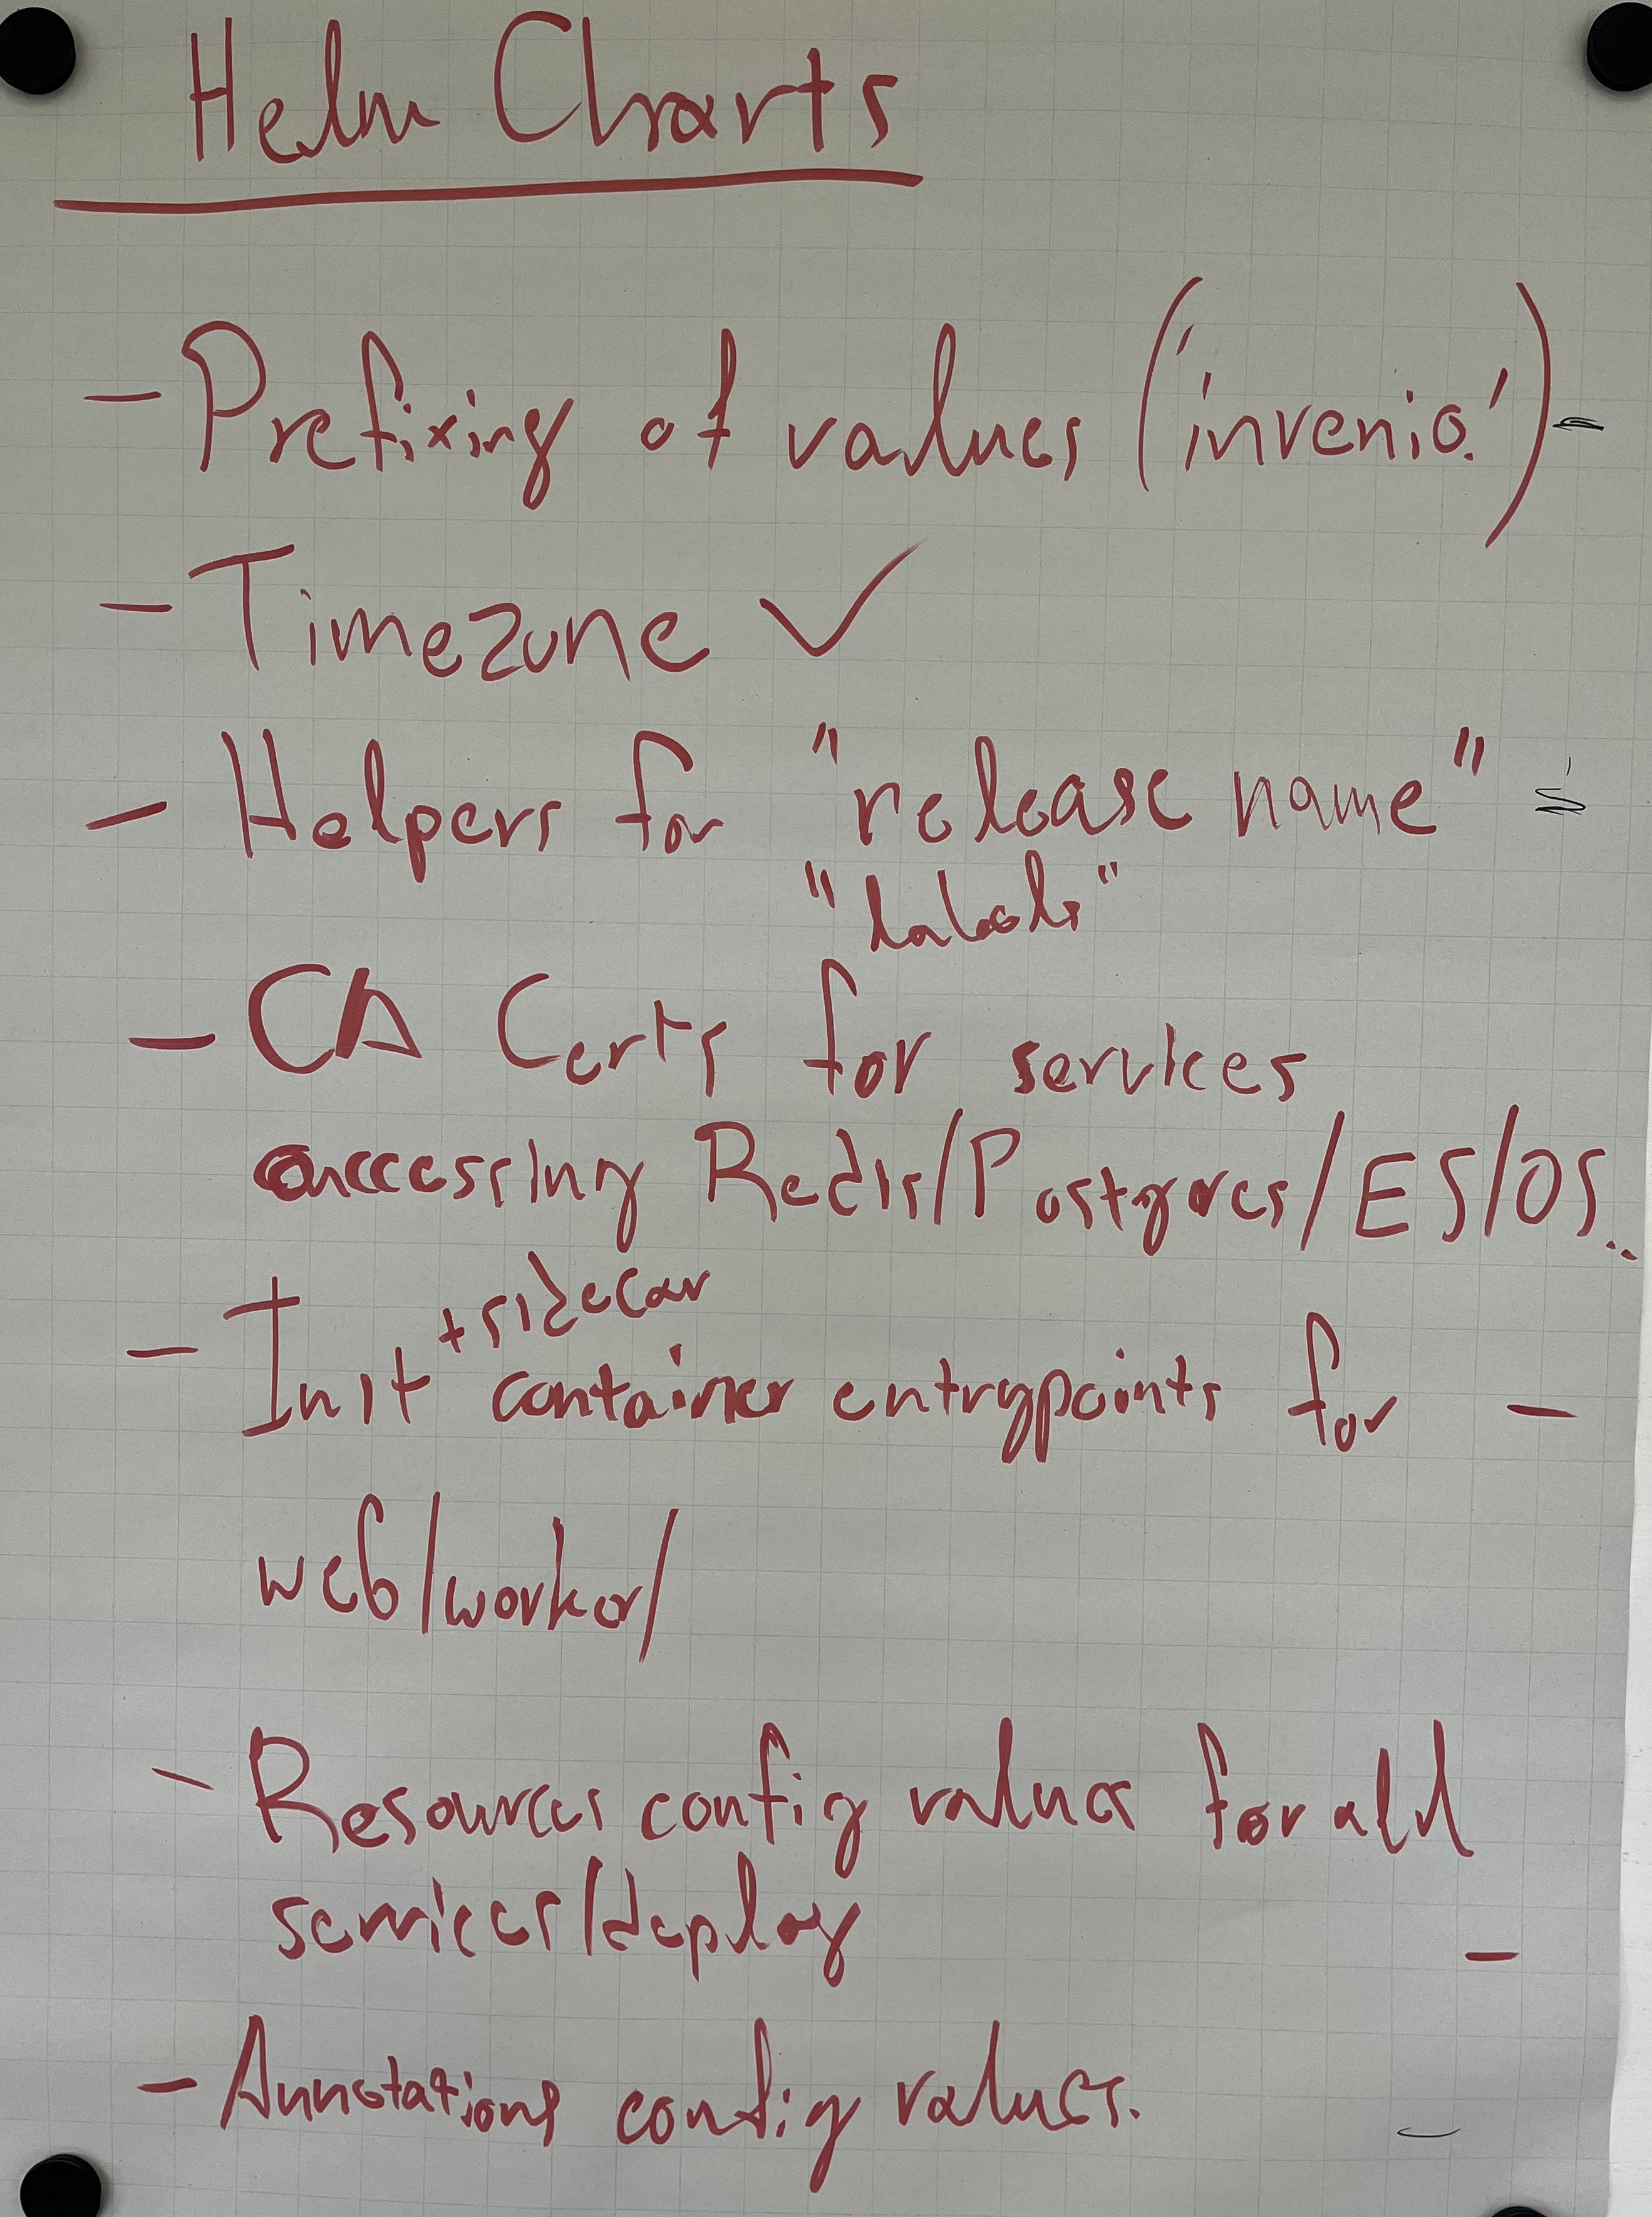 Helm Charts
- Prefixing of values ('invenio.') -
- Timezone ✓
- Helpers for "release name" =
"labels"
- CA Certs for services
accessing Redis/Postgres/ES/OS..
+ sidecar
- Init container entrypoints for -
web/worker/
- Resources config values for all
services/deploy -
- Annotations config values. -